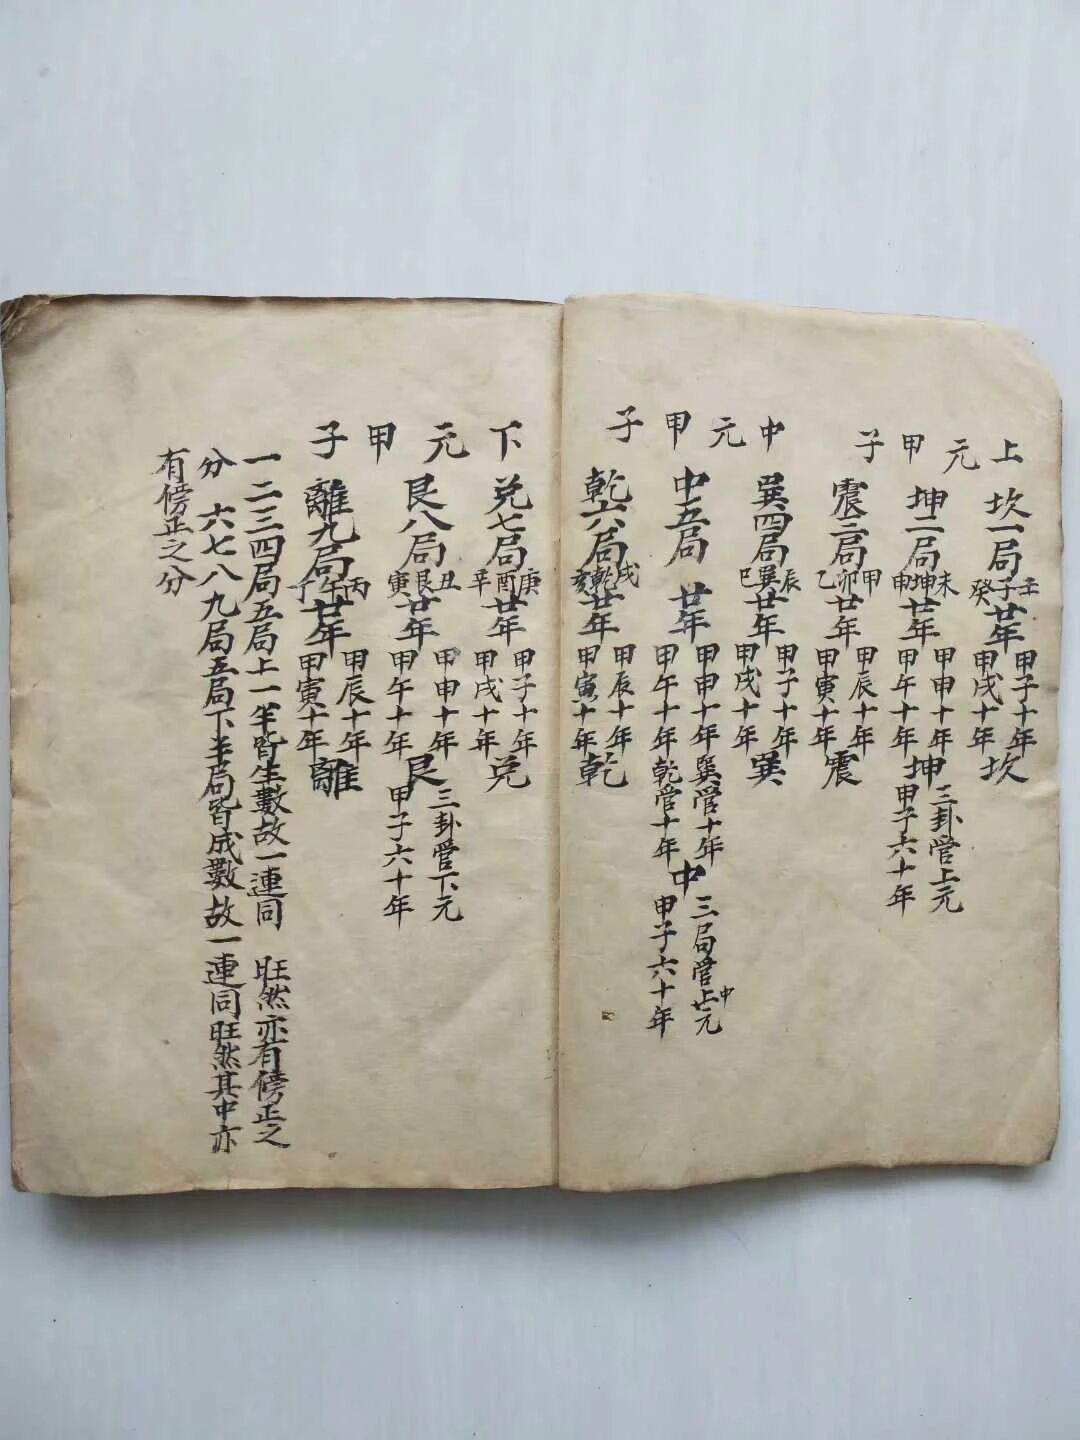 上元甲子
坎一局壬子癸廿年甲子十年甲戌十年坎
坤二局未坤申廿年甲申十年甲午十年坤
三卦管上元
甲子六十年
震三局甲卯乙廿年甲辰十年甲寅十年震
中元甲子
巽四局辰巽巳廿年甲子十年甲戌十年巽
中五局廿年甲申十年巽管十年甲午十年乾管十年中
三局管上中元
甲子六十年
乾六局戌乾亥廿年甲辰十年甲寅十年乾
下元甲子
兌七局庚酉辛廿年甲子十年甲戌十年兌
艮八局丑艮寅廿年甲申十年甲午十年艮
三卦管下元
甲子六十年
離九局丙午丁廿年甲辰十年甲寅十年離
一二三四局五局上一半皆生數故一連同 旺然亦有傍正之
分 六七八九局五局下半局皆成數故一連同旺然其中亦
有傍正之分